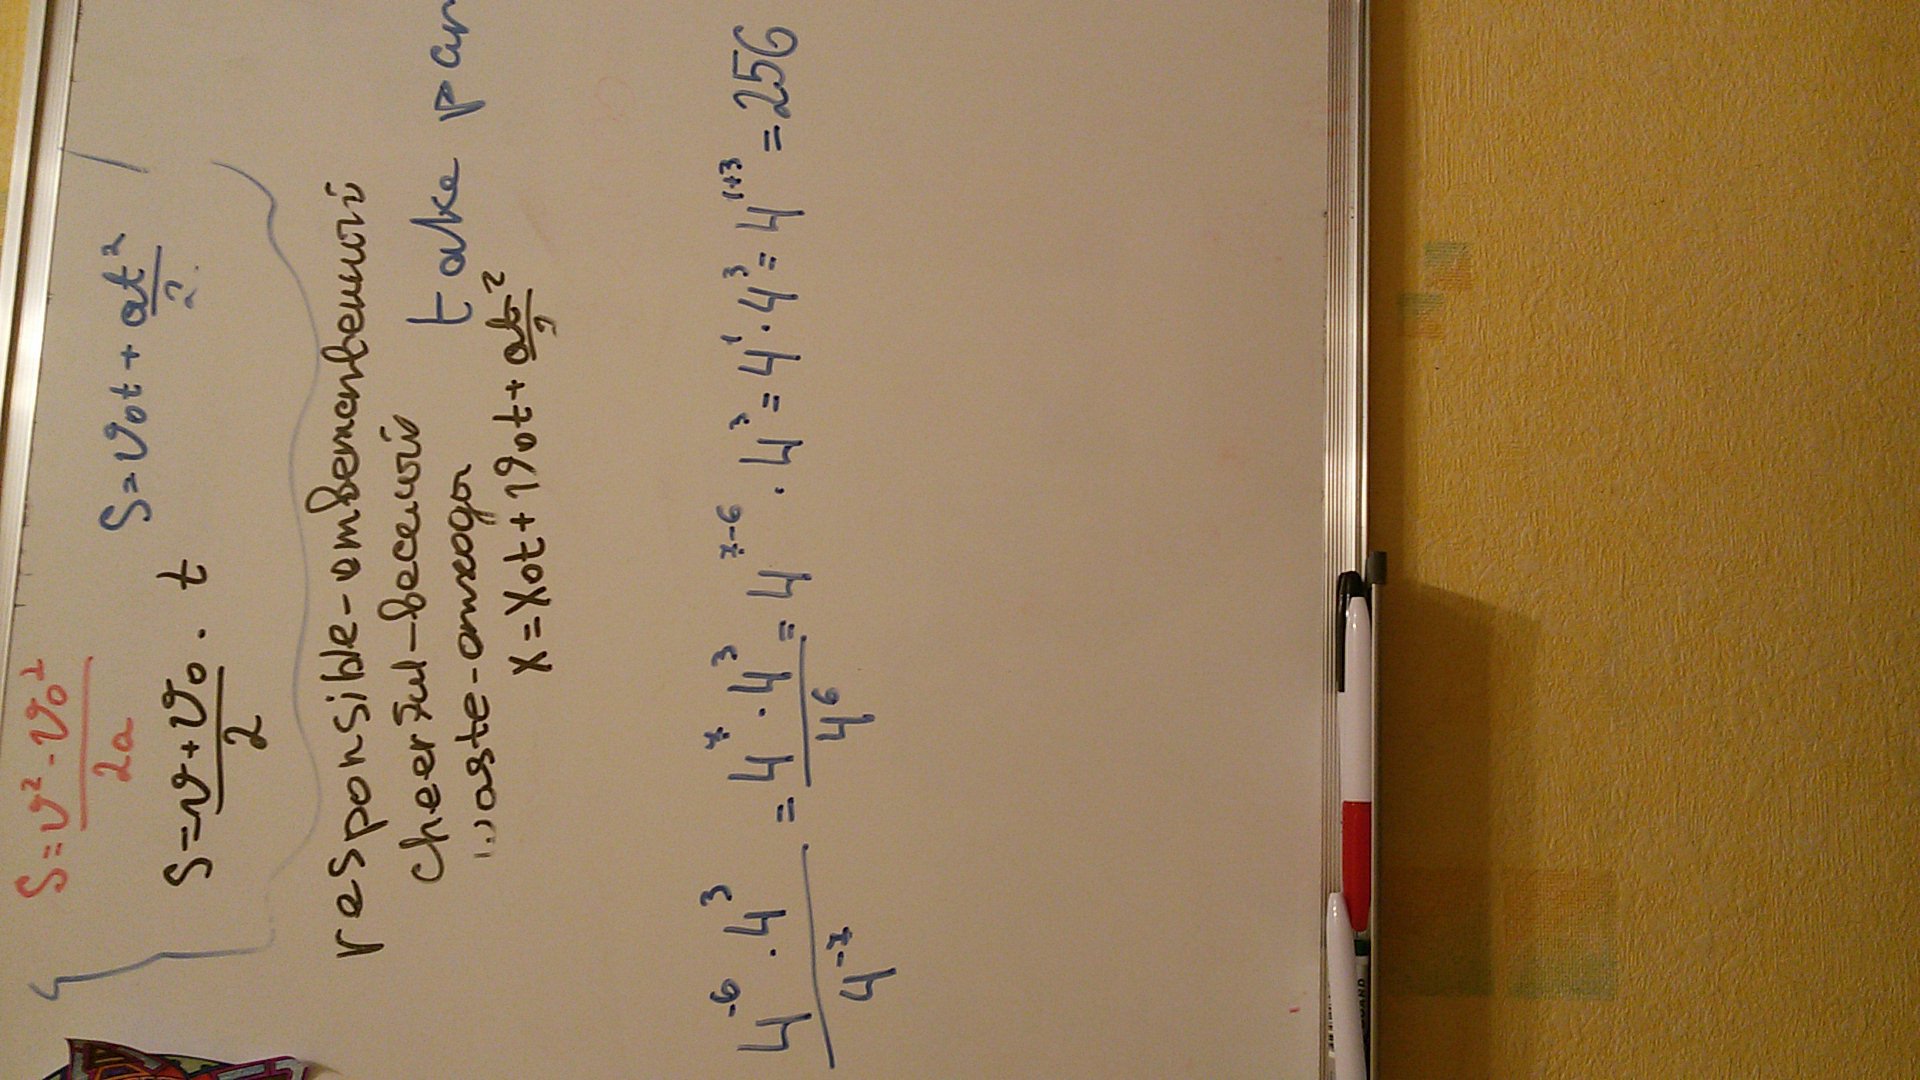 S = (v² - v₀²)/2a
S = (v + v₀)/2 · t    S = v₀t + at²/2
responsible - ответственный
cheerful - веселий
waste - отходи
take par
x = x₀t + v₀t + at²/2
(4⁻⁶ · 4³)/4⁻ˣ = (4ˣ · 4³)/4⁶ = 4ˣ⁻⁶ · 4³ = 4¹ · 4³ = 4¹⁺³ = 256